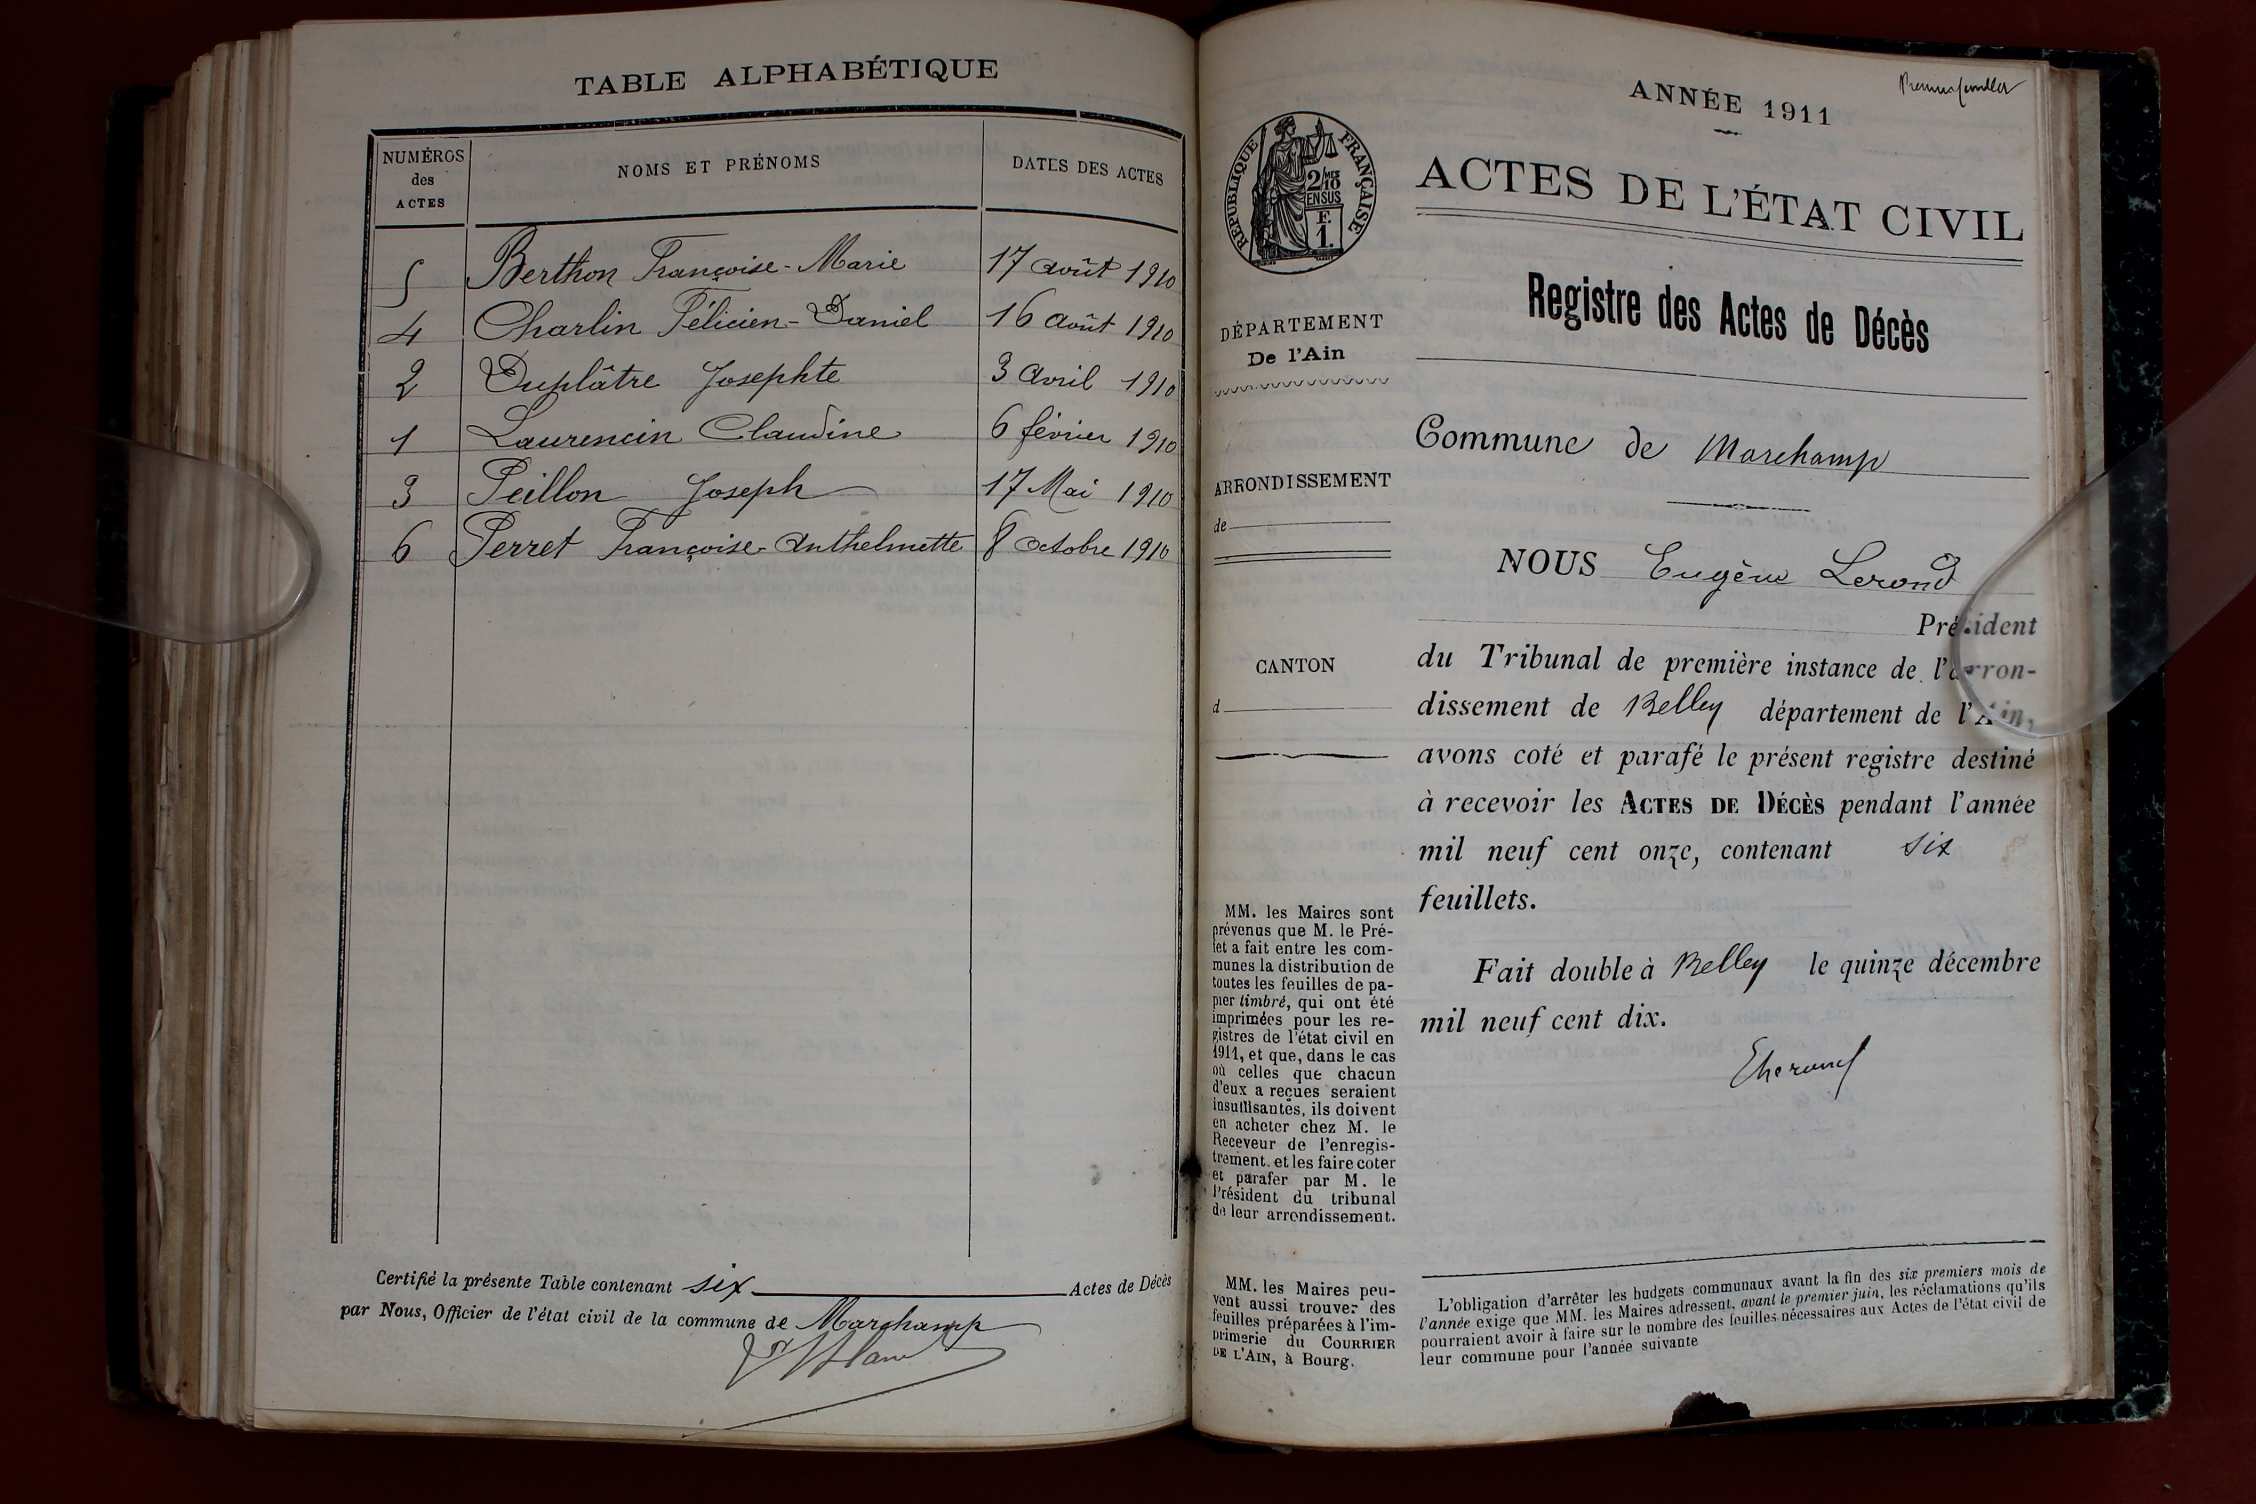 TABLE ALPHABÉTIQUE
NUMÉROS des ACTES
NOMS ET PRÉNOMS
DATES DES ACTES
5 Berthon Françoise-Marie 17 août 1910
4 Charlin Félicien-Daniel 16 août 1910
2 Duplâtre Josephte 3 Avril 1910
1 Laurencin Claudine 6 février 1910
3 Peillon Joseph 17 Mai 1910
6 Perret Françoise-Anthelmette 8 Octobre 1910
Certifié la présente Table contenant six Actes de Décès
par Nous, Officier de l'état civil de la commune de Marchamp
RÉPUBLIQUE FRANÇAISE
2/10 EN SUS
F.
1.
DÉPARTEMENT
De l'Ain
ARRONDISSEMENT
de
CANTON
d
MM. les Maires sont
prévenus que M. le Pré-
fet a fait entre les com-
munes la distribution de
toutes les feuilles de pa-
pier timbré, qui ont été
imprimées pour les re-
gistres de l'état civil en
1911, et que, dans le cas
où celles que chacun
d'eux a reçues seraient
insuffisantes, ils doivent
en acheter chez M. le
Receveur de l'enregis-
trement. et les faire coter
et parafer par M. le
Président du tribunal
de leur arrondissement.
MM. les Maires peu-
vent aussi trouver des
feuilles préparées à l'im-
primerie du COURRIER
DE L'AIN, à Bourg.
Premier feuillet
ANNÉE 1911
ACTES DE L'ÉTAT CIVIL
Registre des Actes de Décès
Commune de Marchamp
NOUS Eugène Lerond
Président
du Tribunal de première instance de l'arron-
dissement de Belley département de l'Ain,
avons coté et parafé le présent registre destiné
à recevoir les ACTES DE DÉCÈS pendant l'année
mil neuf cent onze, contenant six
feuillets.
Fait double à Belley le quinze décembre
mil neuf cent dix.
L'obligation d'arrêter les budgets communaux avant la fin des six premiers mois de
l'année exige que MM. les Maires adressent, avant le premier juin, les réclamations qu'ils
pourraient avoir à faire sur le nombre des feuilles nécessaires aux Actes de l'état civil de
leur commune pour l'année suivante